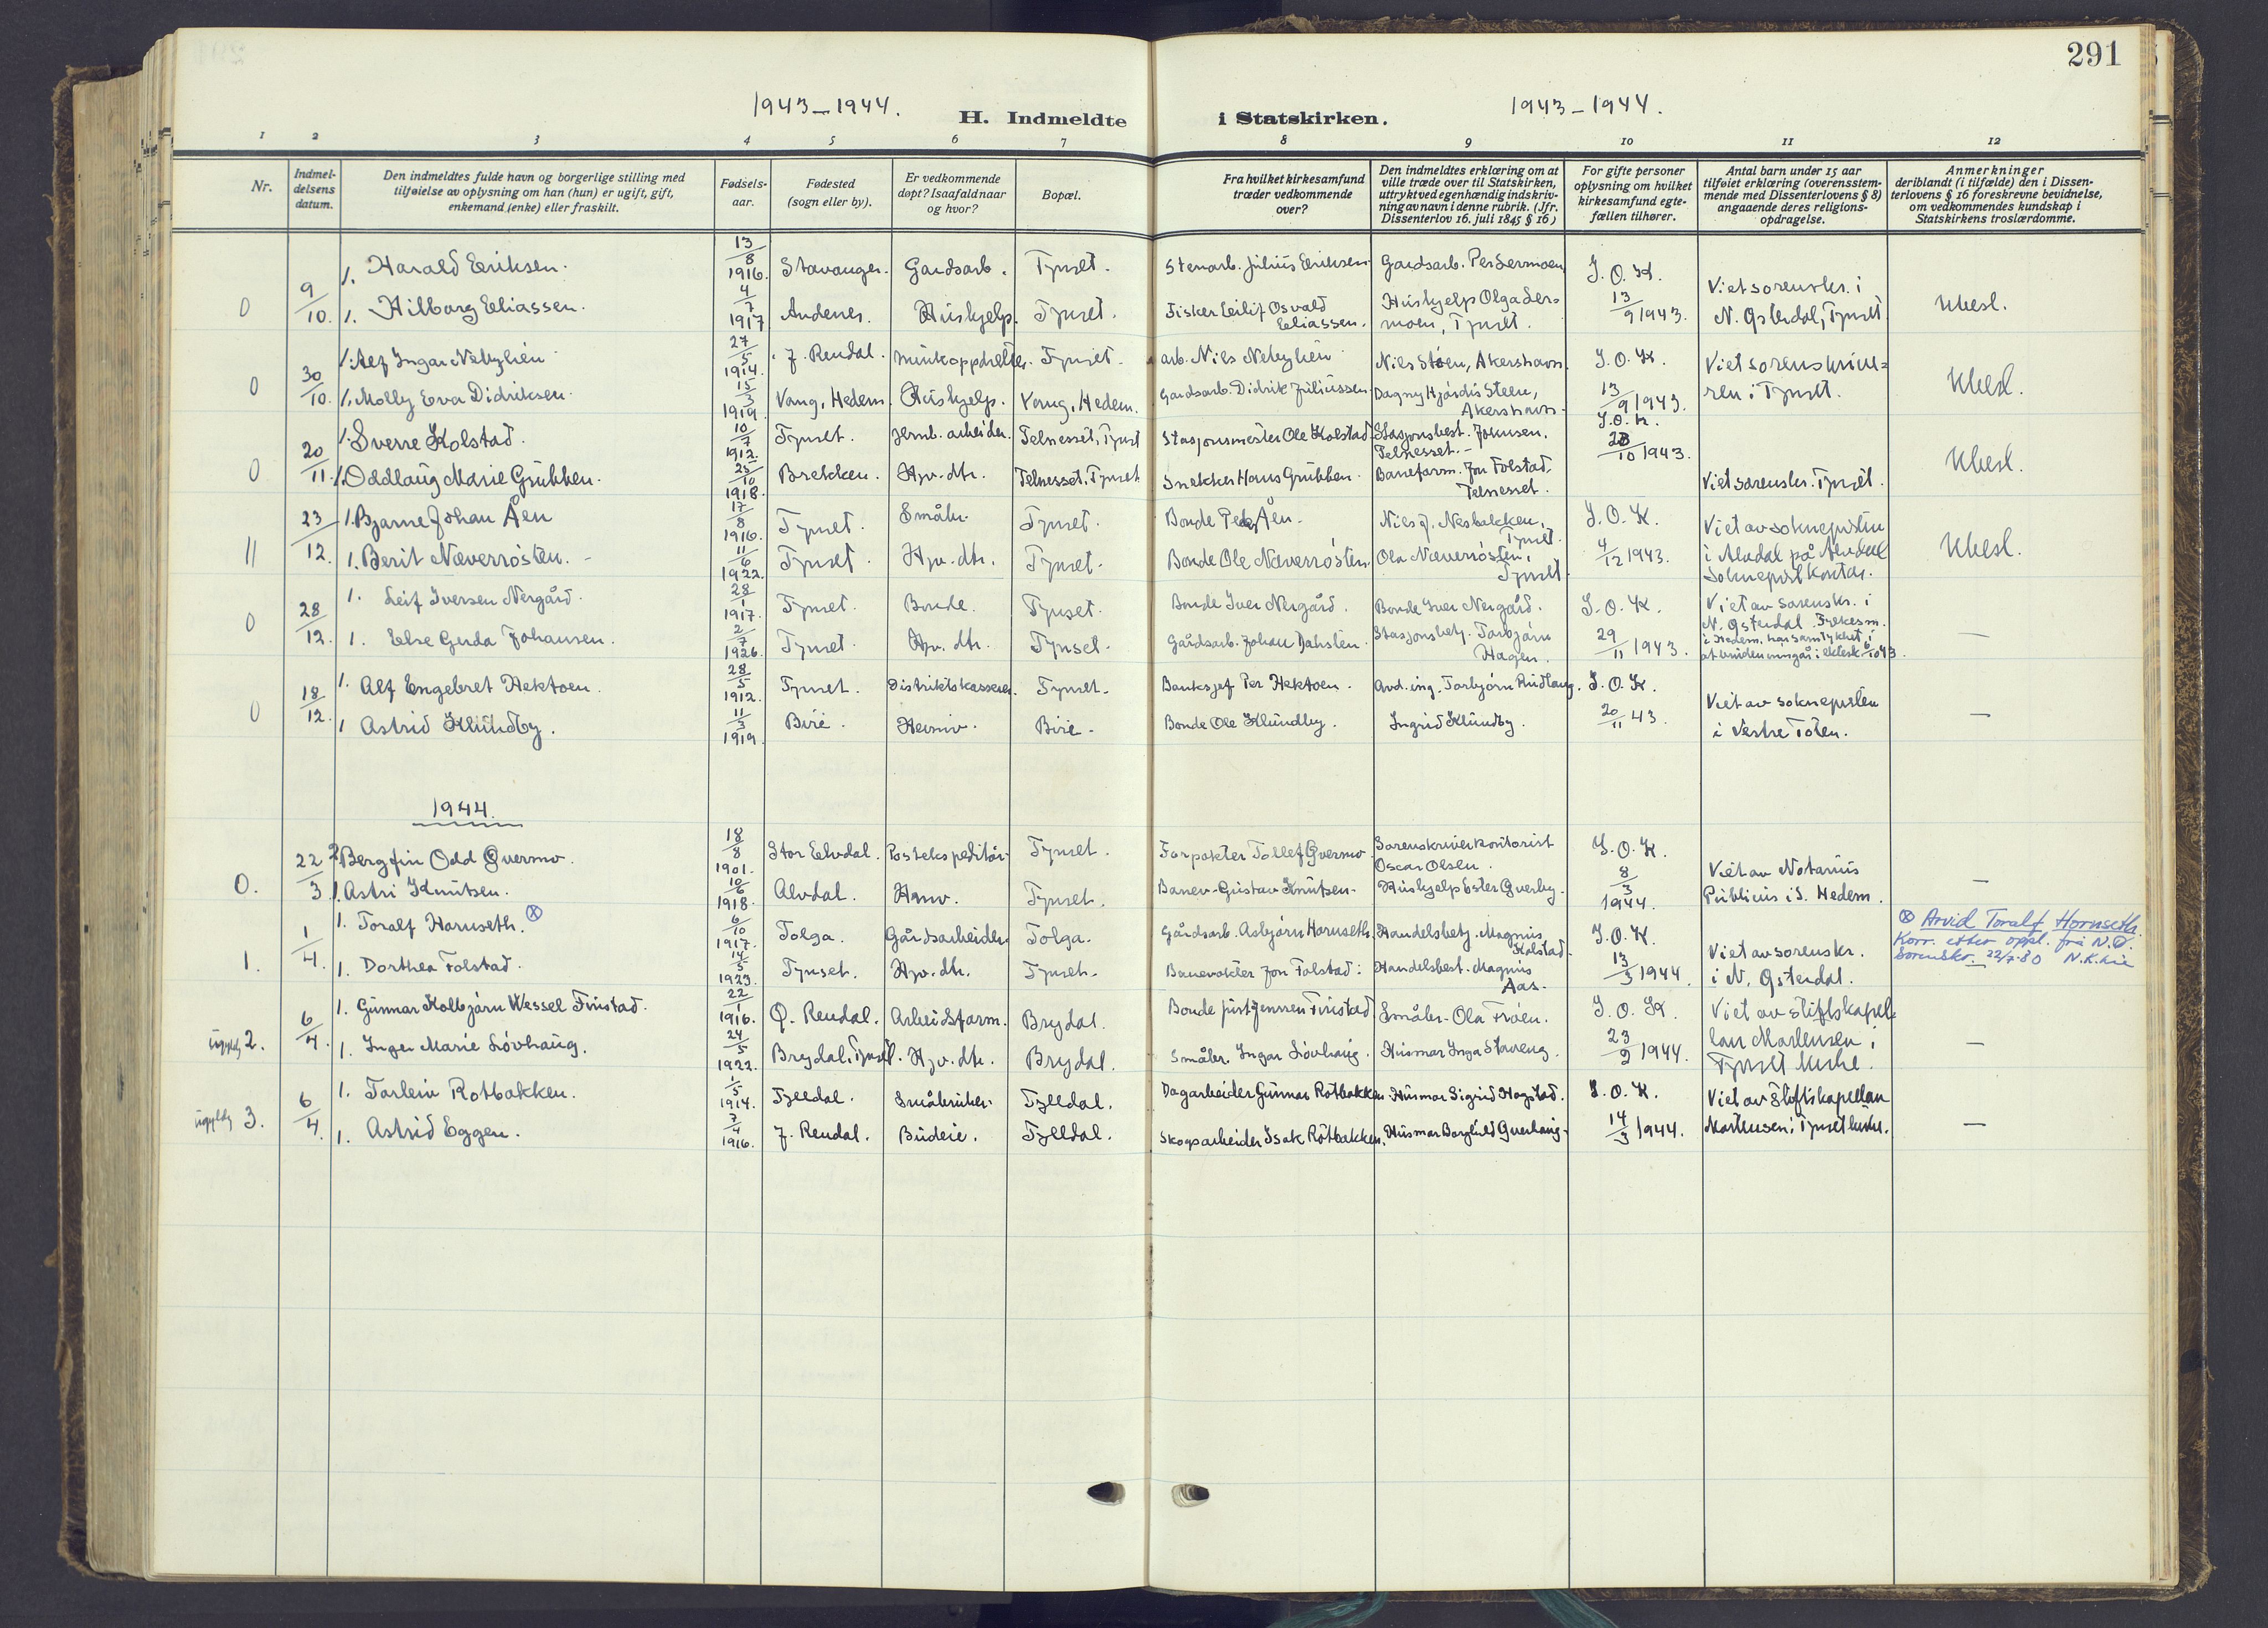 291
1943–1944.
H. Indmeldte
i Statskirken.
1943–1944.
1 2 3 4 5 6 7 8 9 10 11 12
Nr.
Indmel-
delsens
datum.
Den indmeldtes fulde navn og borgerlige stilling med
tilføielse av oplysning om han (hun) er ugift, gift,
enkemand (enke) eller fraskilt.
Fødsels-
aar.
Fødested
(sogn eller by).
Er vedkommende
døpt? Isaafald naar
og hvor?
Bopæl.
Fra hvilket kirkesamfund
træder vedkommende
over?
Den indmeldtes erklæring om at
ville træde over til Statskirken,
uttrykt ved egenhændig indskriv-
ning av navn i denne rubrik. (Jfr.
Dissenterlov 16. juli 1845 § 16)
For gifte personer
oplysning om hvilket
kirkesamfund egte-
fællen tilhører.
Antal barn under 15 aar
tilføiet erklæring (overensstem-
mende med Dissenterlovens § 8)
angaaende deres religions-
opdragelse.
Anmerkninger
deriblandt (i tilfælde) den i Dissen-
terlovens § 16 foreskrevne bevidnelse,
om vedkommendes kundskap i
Statskirkens troslærdomme.
1. Harald Eriksen. 13/8 1916. Stavanger. Gardsarb. Tynset. Stenarb. Julius Eriksen. Gardsarb. Per Sermoen I.O.K.
0 9/10. 1. Hilborg Eliassen. 4/7 1917 Andenes. Hushjelp. Tynset. Fisker Eilif Osvald Eliassen. Hushjelp Olga Ser-
moen, Tynset. 13/9 1943. Viet sorenskr. i
N. Østerdal, Tynset. Ubesl.
1. Alf Ingar Nebyhén 27/5 1914. Y. Rendal. Minkoppdretter. Tynset. arb. Nils Nebyhén Nils Støen, Akershavn. I.O.K. Viet sorenskrive-
0 30/10. 1. Molly Eva Didriksen. 15/3 1919. Vang, Hedem. Hushjelp. Vang, Hedem. Gardsarb. Didrik Juliussen. Dagny Hjørdis Steen,
Akershavn. 13/9 1943. ren i Tynset. Ubesl.
1. Sverre Kolstad. 10/7 1912. Tynset. Jernb. arbeider. Telnesset, Tynset Stasjonsmester Ole Kolstad. Stasjonsbest. Johnsen.
Telnesset. I.O.K. 28/10 1943.
0 20/11. 1. Oddlaug Marie Grubben. 25/10 1918. Brekken. Hjv. dtr. Telnesset, Tynset Snekker Hans Grubben. Baneform. Jon Tolstad,
Telnesset. Viet sorenskr. Tynset. Ubesl.
1. Bjarne Johan Åen 17/8 1916. Tynset. Småbr. Tynset. Bonde Peder Åen. Nils J. Nesbakken,
Tynset. I.O.K. Viet av sokneprsten
11 23/12. 1. Berit Næverrøsten. 11/6 1922. Tynset. Hjv. dtr. Tynset. Bonde Ole Næverrøsten. Ola Næverrøsten,
Tynset. 4/12 1943. i Alvdal på Alvdal
Sokneprestkontor. Ubesl.
1. Leif Iversen Nergård. 28/1 1917. Tynset. Bonde. Tynset. Bonde Iver Nergård. Bonde Iver Nergård. I.O.K. Viet av sorenskr. i
N. Østerdal. Fylkesm.
0 28/12. 1. Else Gerda Johansen. 2/7 1926. Tynset. Hjv. dtr. Tynset. Gårdsarb. Johan Dahlstén. Stasjonsbetj. Torbjørn
Hagen. 29/11 1943. i Hedem. har samtykket i
at bruden inngår i ektesk. 6/10 43. –
1. Alf Engebret Hektoen. 28/5 1912. Tynset. Distriktskasserer. Tynset. Banksjef Per Hektoen. Avd. ing. Torbjørn Rudlang. I.O.K. Viet av soknepresten
0 18/12. 1 Astrid Klundby. 11/3 1919. Biri. Heimv. Biri. Bonde Ole Klundby. Ingrid Klundby. 20/11 43. i Vestre Toten. –
1944.
2. Bergfin Odd Qvermo. 18/8 1901. Stor Elvdal. Postekspeditør. Tynset. Forpakter Tollef Qvermo. Sorenskriverkontorist
Oscar Olsen. I.O.K. Viet av Notarius
0. 22/3 1. Astri Knutsen. 10/6 1918. Alvdal. Hmv. Tynset. Banev. Gustav Knutsen. Hushjelp Ester Qverby. 8/3 1944. Publicus i S. Hedem. –
1. Toralf Hornseth. ⓧ 6/10 1917. Tolga. Gårdsarbeider. Tolga. Gårdsarb. Asbjørn Hornseth. Handelsbetj. Magnus
Kolstad. I.O.K. Viet av sorenskr.
1. 1/4. 1. Dorthea Tolstad. 14/5 1923. Tynset. Hjv. dtr. Tynset. Banevokter Jon Tolstad. Handelsbest. Magnus
Aas. 13/3 1944. i N. Østerdal.
ⓧ Arvid Toralf Hornseth.
Korr. etter oppl. frå N.Ø.
Sorenskr. 22/7-80 N.K. Lie
1. Gunnar Kolbjørn Wessel Finstad. 22/1 1916. Ø. Rendal. Arbeidsform. Brydal. Bonde Just Jensen Finstad. Småbr. Ola Trøen. I.O.K. Viet av stiftskapel-
ugyldig 2. 6/4. 1. Inger Marie Løvhaug. 24/5 1922. Brydal, Tynset. Hjv. dtr. Brydal. Småbr. Ingar Løvhaug. Husmor Inga Storeng. 23/2 1944. lan Martensen i
Tynset kirke. –
1. Torleiv Rotbakken. 1/5 1914. Tylldal. Småbruker. Tylldal. Dagarbeider Gunnar Rotbakken. Husmor Sigrid Hogstad. I.O.K. Viet av Stiftskapellan
ugyldig 3. 6/4. 1. Astrid Eggen. 7/4 1916. Y. Rendal. Budeie. Tylldal. Skogsarbeider Isak Rotbakken. Husmor Borghild Qverhaug. 14/3 1944. Martensen i Tynset kirke. –